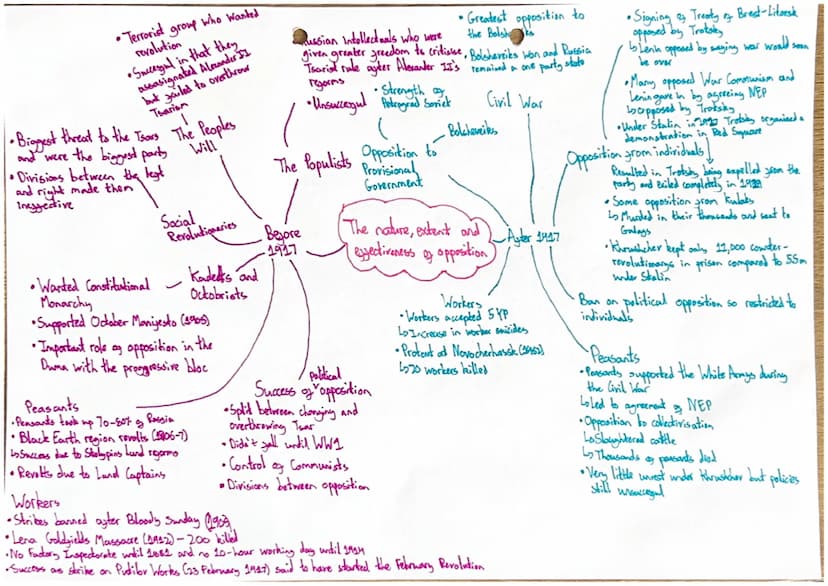 The nature, extent and
effectiveness of opposition
Before
1917
The Peoples
Will
• Terrorist group who wanted
revolution
• Successful in that they
assassinated Alexander II
but failed to overthrow
Tsarism
The Populists
• Russian Intellectuals who were
given greater freedom to criticise
Tsarist rule after Alexander II's
reforms
• Unsuccessful
Social
Revolutionaries
• Biggest threat to the Tsars
and were the biggest party
• Divisions between the left
and right made them
ineffective
Kadets and
Octobrists
• Wanted Constitutional
Monarchy
• Supported October Manifesto (1905)
• Important role of opposition in the
Duma with the progressive bloc
Peasants
• Peasants took up 70-80% of Russia
• Black Earth region revolts (1906-7)
↳ Success due to Stolypins land reforms
• Revolts due to Land Captains
Success of political opposition
• Split between changing and
overthrowing Tsar
• Didn't fall until WW1
• Control of Communists
• Divisions between opposition
Workers
• Strikes banned after Bloody Sunday (1905)
• Lena Goldfields Massacre (1912) – 200 killed
• No Factory Inspectorate until 1881 and no 10-hour working day until 1914
• Success as strike on Putilov Works (23 February 1917) said to have started the February Revolution
After 1917
Civil War
• Greatest opposition to
the Bolsheviks
• Bolsheviks won and Russia
remained a one party state
Opposition to
Provisional
Government
• Strength of
Petrograd Soviet
Bolsheviks
Opposition from individuals
• Signing of Treaty of Brest-Litovsk
opposed by Trotsky
↳ Lenin opposed by saying war would soon
be over
• Many opposed War Communism and
Lenin gave in by agreeing NEP
↳ Opposed by Trotsky
• Under Stalin in Trotsky organised a
demonstration in Red Square
Resulted in Trotsky being expelled from the
party and exiled completely in
• Some opposition from Kulaks
↳ Murdered in their thousands and sent to
Gulags
• Khrushchev kept only 11,000 counter-
revolutionarys in prison compared to 5.5m
under Stalin
Ban on political opposition so restricted to
individuals
Workers
• Workers accepted 5YP
↳ Increase in worker suicides
• Protest at Novocherkassk
↳ 70 workers killed
Peasants
• Peasants supported the White Armys during
the Civil War
↳ Led to agreement of NEP
• Opposition to collectivisation
↳ Slaughtered cattle
↳ Thousands of peasants died
• Very little unrest under Khrushchev but policies
still unsuccessful